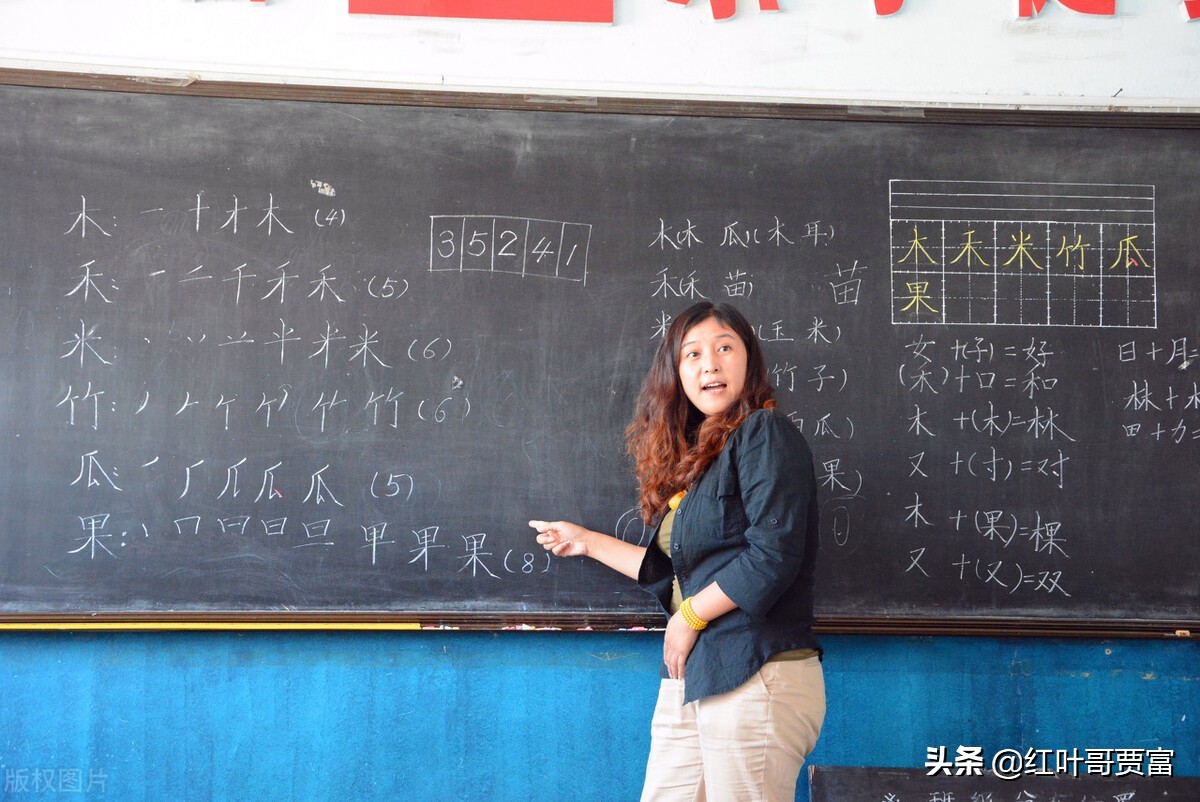 木: 一 十 才 木 (4)
禾: 一 二 千 禾 禾 (5)
米: 丶 丷 䒑 半 米 米 (6)
竹: 丿 𠂉 竹 (6)
瓜: 一 厂 瓜 瓜 瓜 (5)
果: 丨 冂 日 旦 甲 果 果 (8)
3 5 2 4 1
木(木 瓜)(木 耳)
禾(禾 苗) 苗
米 (玉 米)
竹 子)
瓜)
果)
木 禾 米 竹 瓜
果
女 +(子) = 好
(禾)+口 = 和
木 +(木)=林
又 +(寸)=对
木 +(果)=棵
又 +(又)=双
日+月=
林+木
田+力=
版权图片
头条 @红叶哥贾富